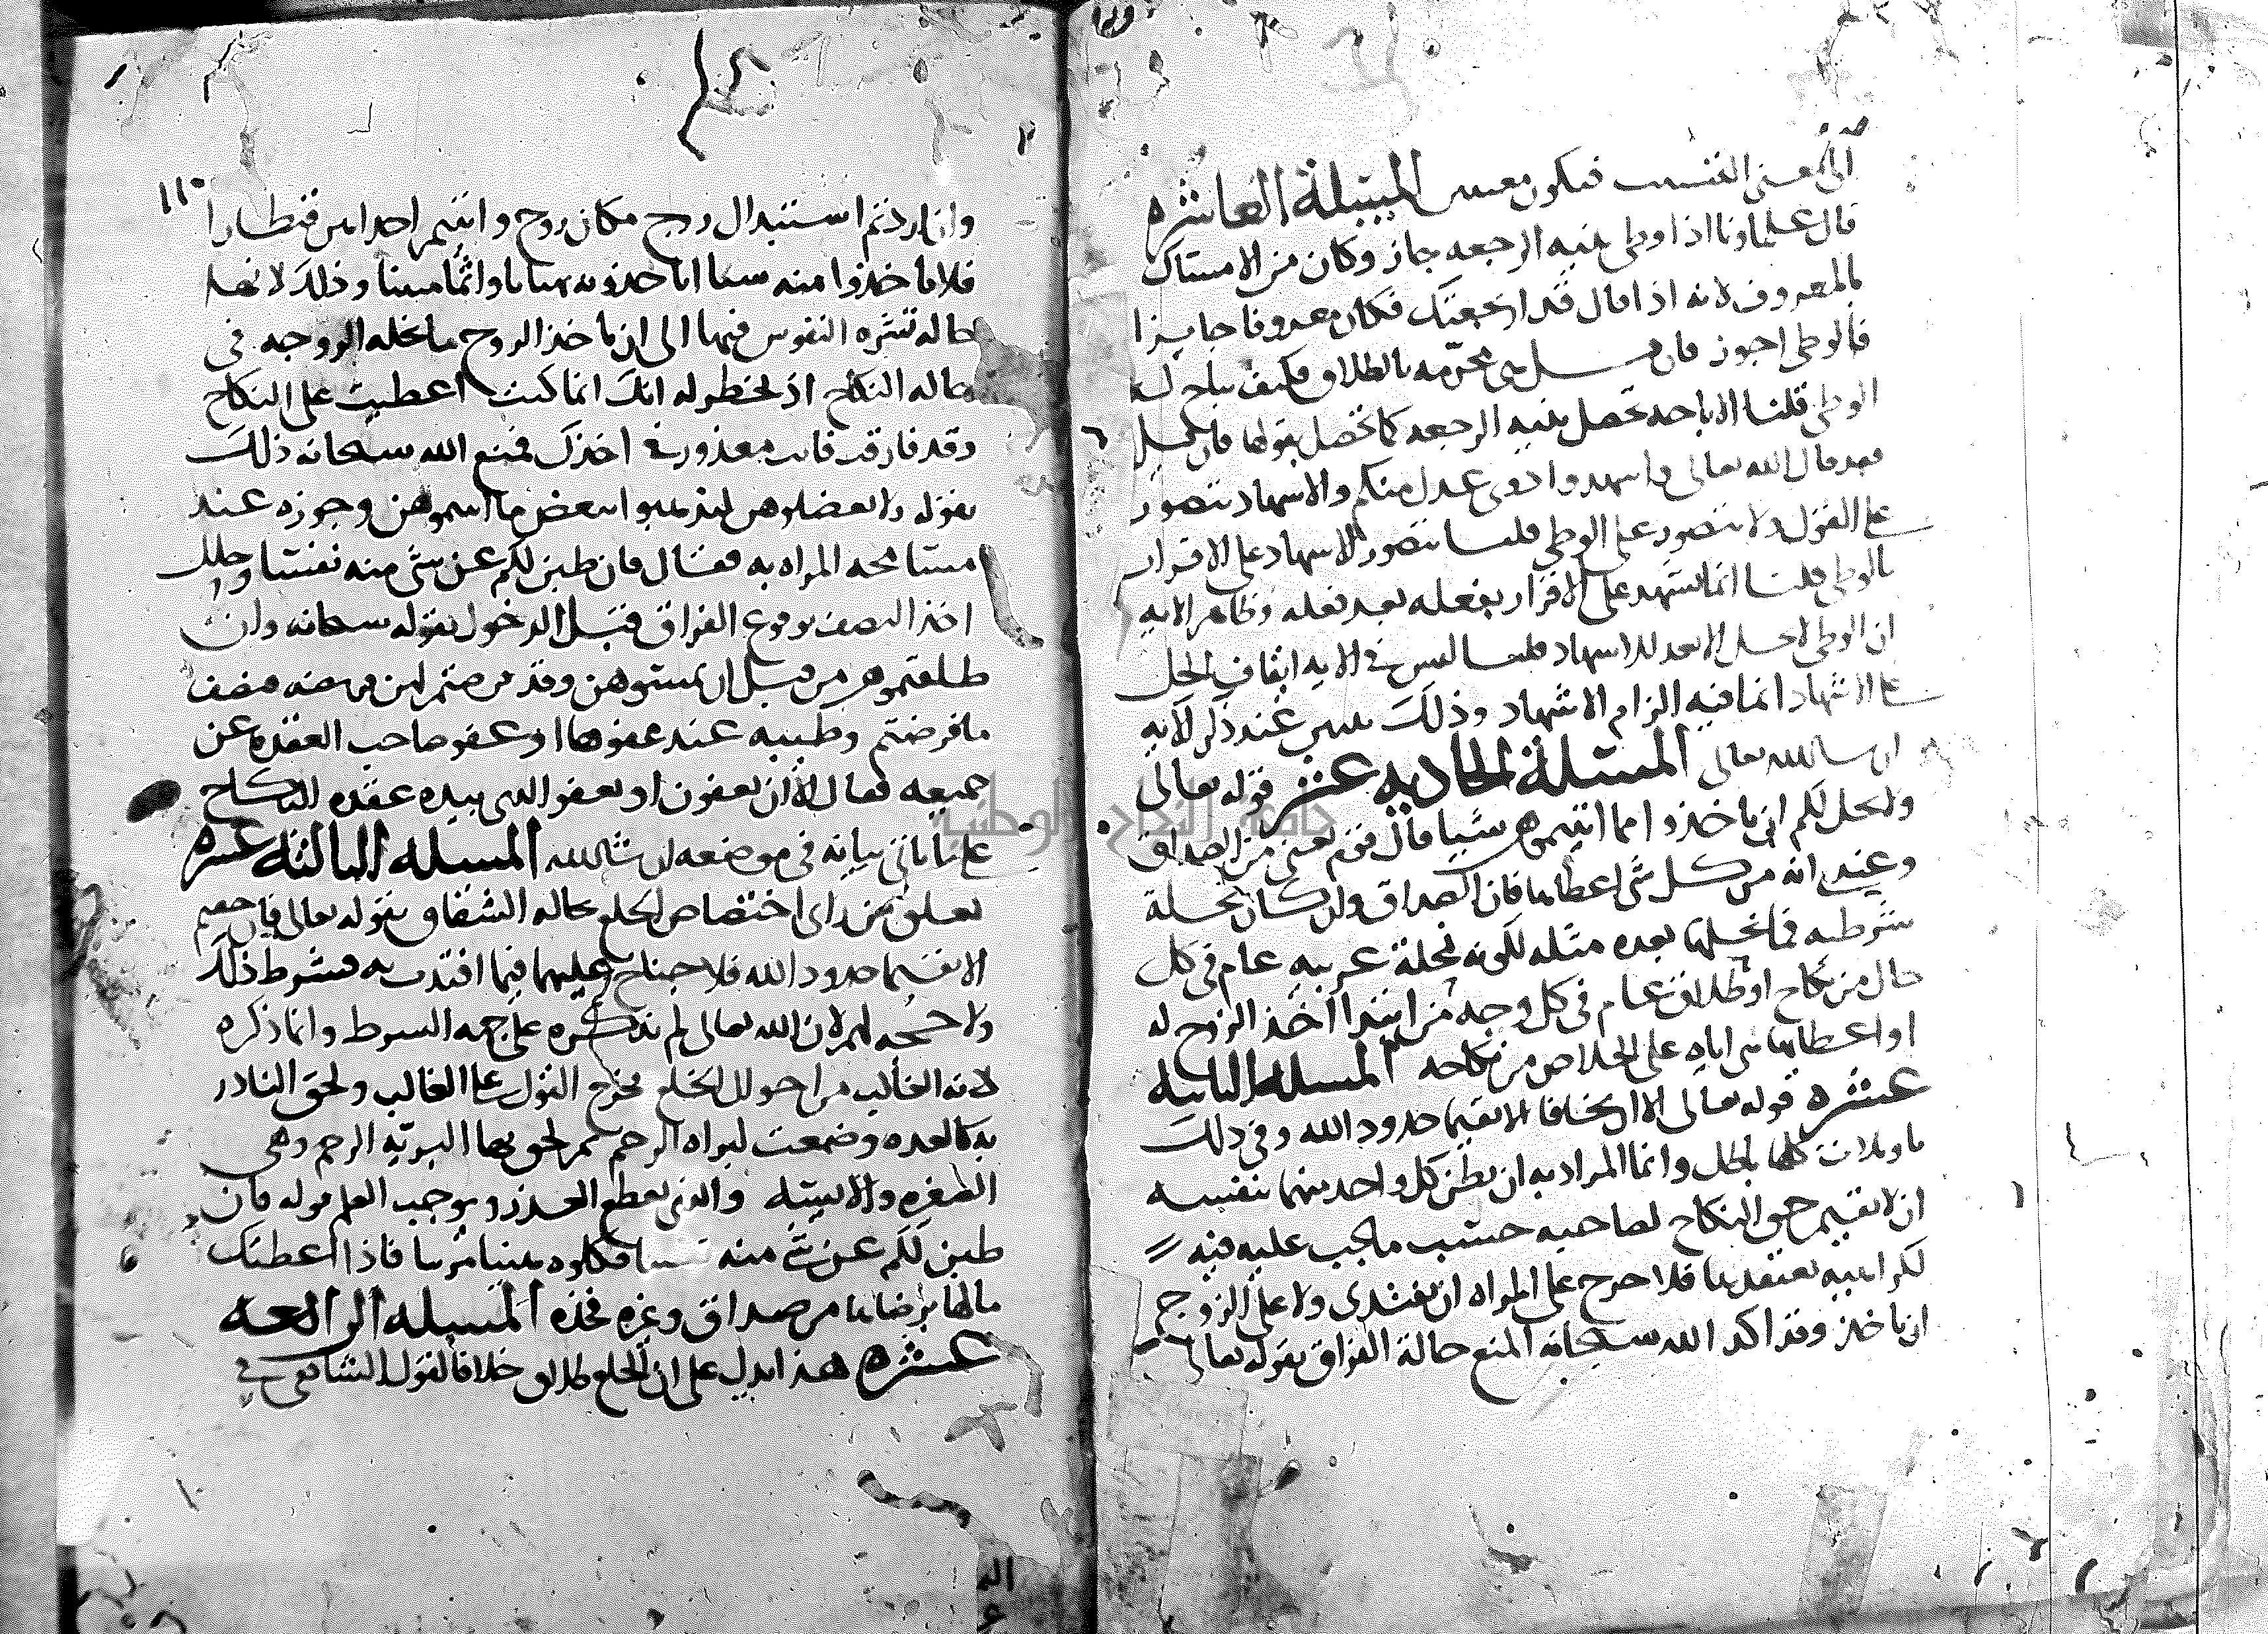 الى معنى النفيس فيكون معنيين المسئلة العاشره
قال علماونا اذا وطى بنيه الرجعه جاز وكان من الامساك
بالمعروف لانه اذا قال قد ارتجعتك فكان معروفا جايزا
فالوطى اجوز فان قيل هى محرمه بالطلاق فكيف يباح له
الوطى قلنا الاباحه تحصل بنيه الرجعه كما تحصل بقولها فان قيل
فقد قال الله تعالى واشهدوا ذوى عدل منكم والاشهاد يتصور
على القول ولا يتصور على الوطى قلنا يتصور الاشهاد على الاقرار
بالوطى قلنا انما يشهد على الاقرار بفعله بعد فعله وظاهر الايه
ان الوطى لا يحل الا بعد الاشهاد قلنا ليس فى الايه ايقاف الحل
على الاشهاد انما فيه الزام الاشهاد وذلك يتبين عند ذكر الايه
ان شا الله تعالى المسئلة الحاديه عشر قوله تعالى
ولا يحل لكم ان تاخذوا مما اتيتموهن شيا قال قوم يعنى من الصداق
وعندى انه من كل شى اعطاها فان الصداق وان كان نحلة
شرطيه فما نحلها بعده مثله لكونه نحلة عربيه عام فى كل
حال من نكاح او طلاق عام فى كل وجه من ابتدا اخذ الزوج له
او اعطايها هى اياه على الخلاص من نكاحه المسله الثانيه
عشره قوله تعالى الا ان يخافا الا يقيما حدود الله وفى ذلك
تاويلات كلها باطل وانما المراد به ان يظن كل واحد منهما بنفسه
ان لا يقيم حق النكاح لصاحبه حسب ما يجب عليه فيه
لكراهيه يعتقدها فلا حرج على المراه ان تفتدى ولا على الزوج
ان ياخذ وقد اكد الله سبحانه المنع حالة الفراق بقوله تعالى
١١٠
وان اردتم استبدال زوج مكان زوج واتيتم احداهن قنطارا
فلا تاخذوا منه شيا اتاخذونه بهتانا واثما مبينا وذلك لانها
حاله تشره النفوس فيها الى ان ياخذ الزوج ما نحله الزوجه فى
حاله النكاح اذ يخطر له انك انما كنت اعطيت على النكاح
وقد فارقت فانت معذور فى اخذك فمنع الله سبحانه ذلك
بقوله ولا تعضلوهن لتذهبوا ببعض ما اتيتموهن وجوزه عند
مسامحه المراه به فقال فان طبن لكم عن شى منه نفسا وحلل
اخذ النصف بوقوع الفراق قبل الدخول بقوله سبحانه وان
طلقتموهن من قبل ان تمسوهن وقد فرضتم لهن فريضه فنصف
ما فرضتم وطيبه عند عفوها او عفو صاحب العقده عن
جميعه فقال الا ان يعفون او يعفو الذى بيده عقده النكاح
على ما ياتى بيانه فى موضعه ان شا الله المسله الثالثه عشره
تعلق من راى اختصاص الخلع بحاله الشقاق بقوله تعالى فان خفتم
الا يقيما حدود الله فلا جناح عليهما فيما افتدت به فشرط ذلك
ولا حجه لهم لان الله تعالى لم يذكره على جهه الشرط وانما ذكره
لانه الغالب من احوال الخلع فخرج القول على الغالب ولحق النادر
به كالعده وضعت لبراه الرحم ثم لحق بها البريه الرحم وهى
الصغيره والايسه والذى يقطع العذر ويوجب العلم قوله فان
طبن لكم عن شى منه نفسا فكلوه هنيا مريا فاذا اعطتك
مالها برضاها من صداق وغيره فخذه المسله الرابعه
عشره هذا يدل على ان الخلع طلاق خلافا لقول الشافعى فى
جامعة النجاح الوطنية